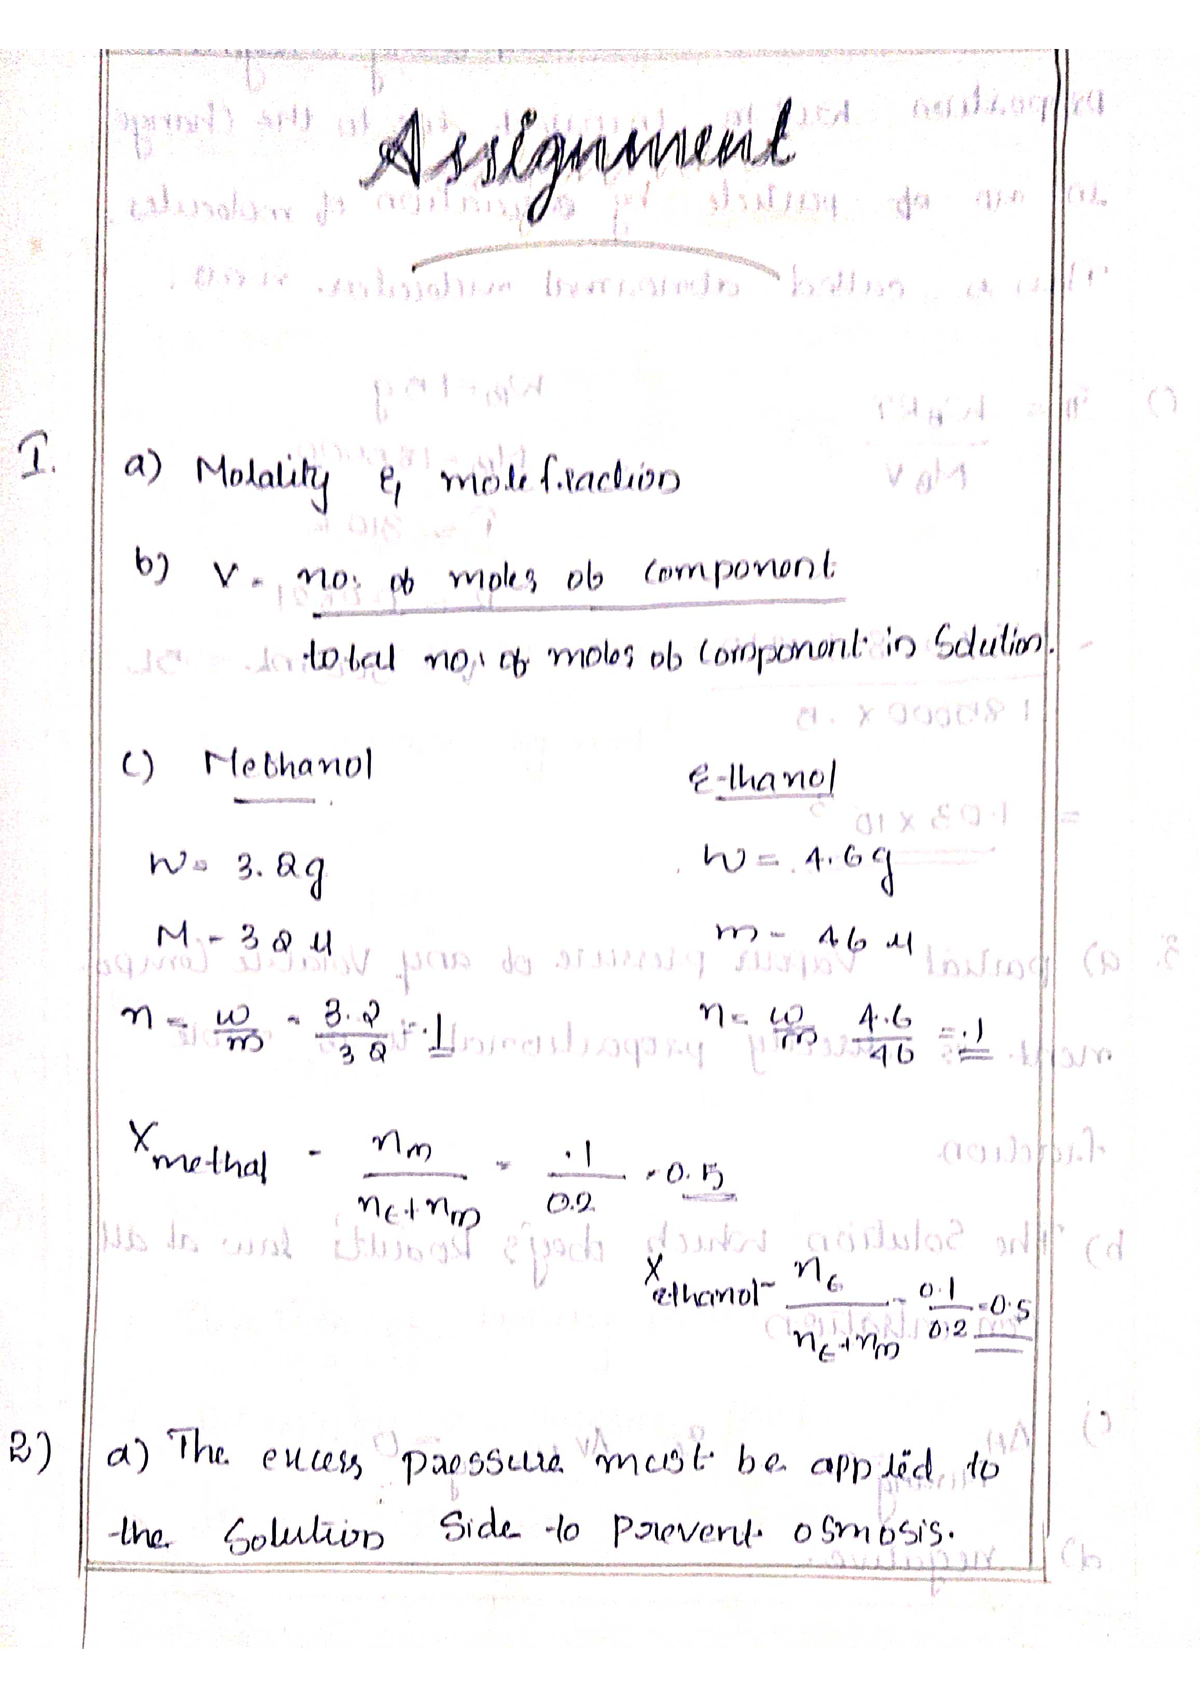 Assignment
I. a) Molality & mole fraction
b) V = no: of moles of component
total no: of moles of component in Solution.
c) Methanol Ethanol
W = 3.2g W = 4.6g
M - 32 u m - 46 u
n = w/m = 3.2/32 = .1 n = w/m 4.6/46 = .1
X methal - nm/nE+nm - .1/0.2 = 0.5
X ethanol - nE/nE+nm - 0.1/0.2 = 0.5
2) a) The excess pressure must be applied to
the Solution Side to prevent osmosis.